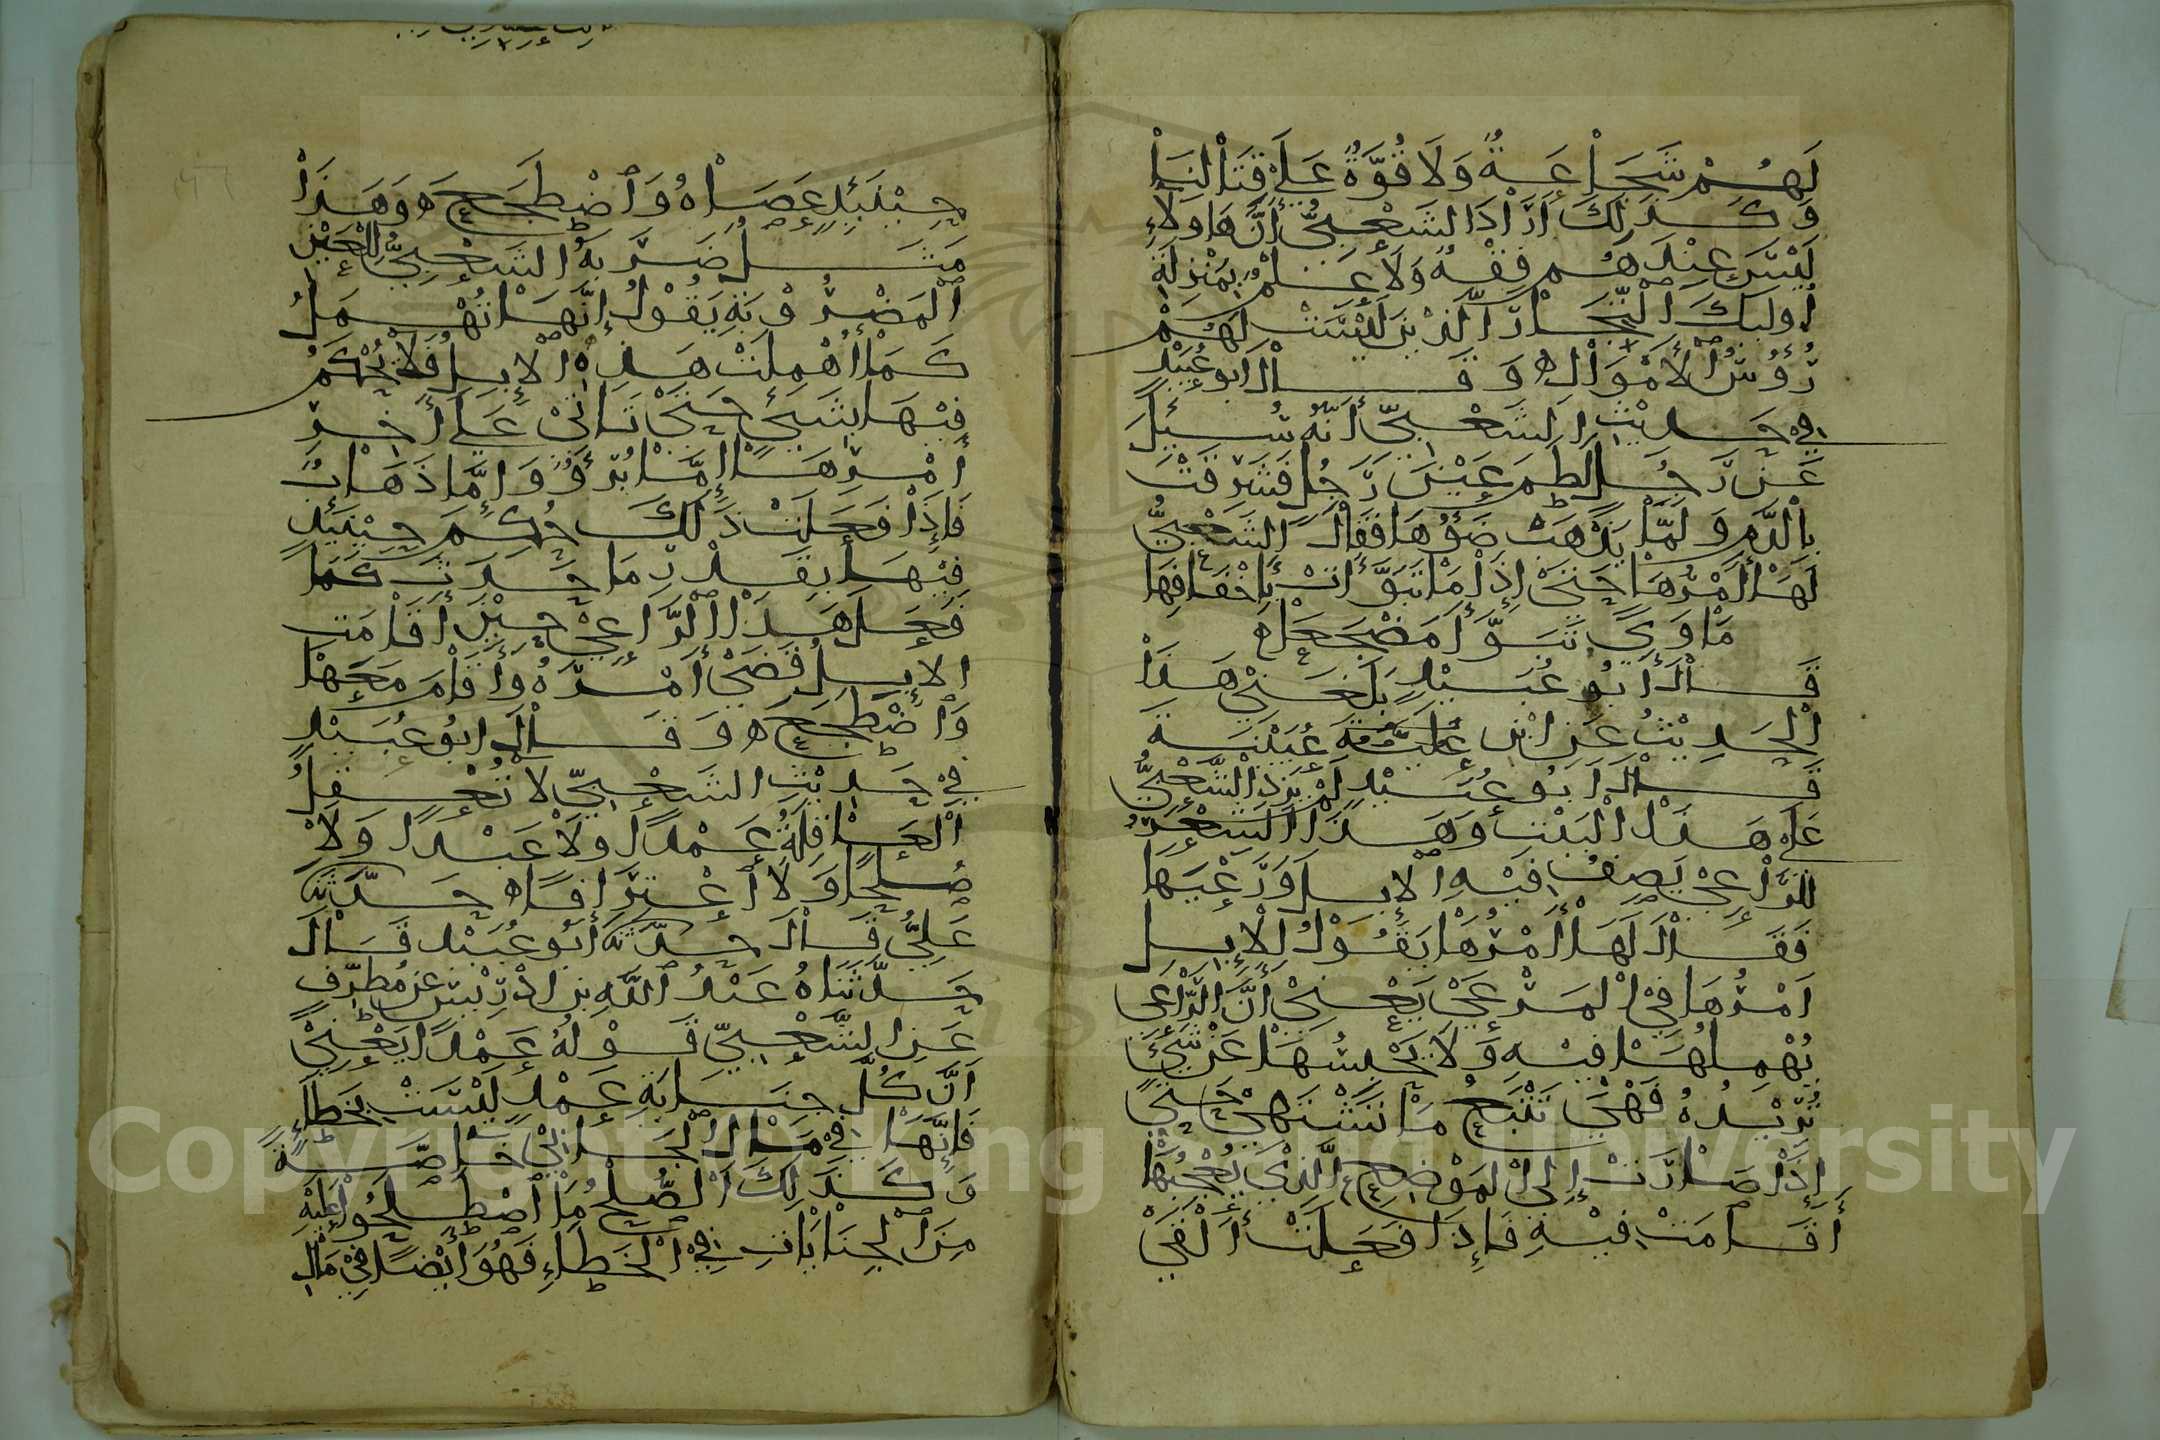 لَهُمْ شَجَاعَةٌ وَلَا قُوَّةٌ عَلَى قِتَالِنَا
وَكَذَلِكَ أَرَادَ الشَّعْبِيُّ أَنَّ هَاولَاءِ
لَيْسَ عِنْدَهُم فِقْهٌ وَلَا عِلْمٌ بِمَنْزِلَةِ
أُولَئِكَ التُّجَارِ الَّذِينَ لَيْسَتْ لَهُمْ
رُؤُسُ الْأَمْوَالِ ه وَقَالَ ابو عُبَيْدٍ
فِي حَدِيْثِ الشَّعْبِيِّ أَنَّهُ سُئِلَ
عَنْ رَجُلٍ لَطَمَ عَيْنَ رَجُلٍ فَشَرِقَتْ
بِالدَّمِ وَلَمَّا يَذْهَبْ ضَوْؤُهَا فَقَالَ الشَّعْبِيُّ
لَهَا أَمْرُهَا حَتَّى إِذَا مَا تَبَوَّأَتْ بِأَخْفَافِهَا
مَاْوًى تَبَوَّأَ مَضْجَعَا ه
قَالَ أَبُو عُبَيْدٍ بَلَغَنِي هَذَا
الْحَدِيْثُ عَنِ ابْنِ عُيَيْنَةَ
قَالَ أَبُو عُبَيْدٍ لَمْ يَزِدِ الشَّعْبِيُّ
عَلَى هَذَا الْبَيْتِ وَهَذَا الشِّعْرُ
لِلرَّاعِيْ يَصِفُ فِيْهِ الْإِبِلَ وَرَاعِيَهَا
فَقَالَ لَهَا أَمْرُهَا يَقُوْلُ لِلْإِبِلِ
أَمْرُهَا فِي الْمَرْعَى يَعْنِي أَنَّ الرَّاعِيَ
يُهْمِلُهَا فِيْهِ وَلَا يَحْبِسُهَا عَنْ شَيْءٍ
تُرِيْدُهُ فَهْيَ تَتْبَعُ مَا تَشْتَهِيْ حَتَّى
إِذَا صَارَتْ إِلَى الْمَوْضِعِ الَّذِيْ يُعْجِبُهَا
أَقَامَتْ فِيْهِ فَإِذَا فَعَلَتْ أَلْقَى
حِيْنَئِذٍ عَصَاهُ وَاضْطَجَعَ ه وَهَذَا
مَثَلٌ ضَرَبَهُ الشَّعْبِيُّ لِلْعَيْنِ
الْمَضْرُوْبَةِ يَقُوْلُ إِنَّهَا تُهْمَلُ
كَمَا أُهْمِلَتْ هَذِهِ الْإِبِلُ فَلَا يُحْكَمُ
فِيْهَا بِشَيْءٍ حَتَّى تَأْتِيَ عَلَى آخِرِ
أَمْرِهَا إِمَّا بُرْؤٌ وَإِمَّا ذَهَابٌ
فَإِذَا فَعَلَتْ ذَلِكَ حُكِمَ حِيْنَئِذٍ
فِيْهَا بِقَدْرِ مَا حَدَثَ كَمَا
فَعَلَ هَذَا الرَّاعِيْ حِيْنَ أَقَامَتِ
الْإِبِلُ قَضَى أَمْرَهُ وَأَقَامَ مَعَهَا
وَاضْطَجَعَ ه وَقَالَ ابُو عُبَيْدٍ
فِي حَدِيْثِ الشَّعْبِيِّ لَا تَعْقِلُ
الْعَاقِلَةُ عَمْدًا وَلَا عَبْدًا وَلَا
صُلْحًا وَلَا اعْتِرَافًا ه حَدَّثَنَا
عَلِيٌّ قَالَ حَدَّثَنَا أَبُو عُبَيْدٍ قَالَ
حَدَّثَنَاهُ عَبْدُ اللَّهِ بْنُ إِدْرِيْسَ عَنْ مُطَرِّفٍ
عَنِ الشَّعْبِيِّ قَوْلُهُ عَمْدًا يَعْنِيْ
أَنَّ كُلَّ جِنَايَةِ عَمْدٍ لَيْسَتْ بِخَطَإٍ
فَإِنَّهَا فِي مَالِ الْجَانِي خَاصَّةً
وَكَذَلِكَ الصُّلْحُ مَا اصْطَلَحُوا عَلَيْهِ
مِنَ الْجِنَايَاتِ فِي الْخَطَاءِ فَهُوَ أَيْضًا فِي مَالِ
Copyright © King Saud University